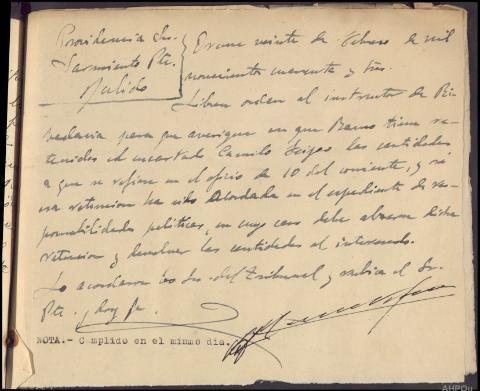 Providencia Srs.
Sarmiento Pte.
Pulido
Orense veinte de Febrero de mil
novecientos cuarenta y tres.
Librese orden al instructor de Ri-
badavia para que averigue en que Banco tiene re-
tenidas el encartado Camilo las cantidades
a que se refiere en el oficio de 10 del corriente, y si
esa retencion ha sido acordada en el expediente de res-
ponsabilidades politicas, en cuyo caso debe alzarse dicha
retencion y devolver las cantidades al interesado.
Lo acordaron los Srs. del Tribunal y rubica el Sr.
Pte. y doy fe.
NOTA.- Cumplido en el mismo dia.
AHPOu